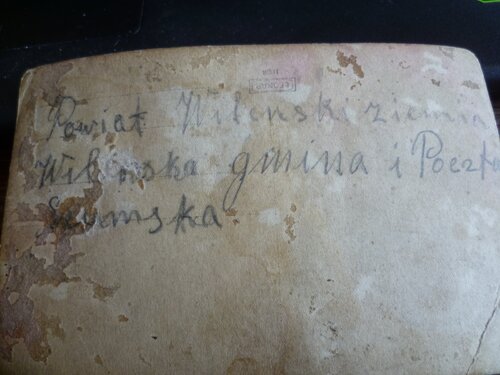 Powiat Wilenski ziemia
Wilenska gmina i Poczta
Szumska.